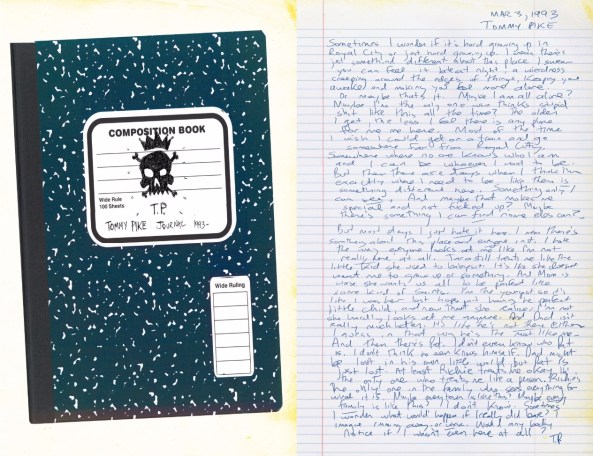 COMPOSITION BOOK
Wide Rule
100 Sheets
T.P.
TOMMY PIKE JOURNAL 1993-
Wide Ruling
MAR 3, 1993
TOMMY PIKE
Sometimes I wonder if it's hard growing up in
Royal City or just hard growing up. I swear there's
just something different about this place. I swear
you can feel it late at night, a weirdness
creeping around the edges of things, keeping you
awake and making you feel more alone.
Or maybe that's it. Maybe I am all alone?
Maybe I'm the only one who thinks stupid
shit like this all the time? The older
I get the less I feel there is any place
for me here. Most of the time
I wish I could get on a train and go
somewhere far from Royal City.
Somewhere where no one knows who I am
and I can be whoever I want to be.
But then there are days when I think I'm
exactly where I need to be. Like there is
something different here. Something only I
can see. And maybe that makes me
special and not fucked up? Maybe
there's something I can find no one else can?
But most days I just hate it here. I mean there's
something about this place and everyone in it. I hate
the way everyone looks at me like I'm not
really here at all. Tara still treats me like the
little kid she used to babysit. It's like she doesn't
want me to grow up or something. And Mom is
worse she wants us all to be perfect like
some kind of Saints. I'm the youngest so it's
like I was her last hope for having the perfect
little child, and now that she realizes I'm not
she hardly looks at me anymore. And Dad isn't
really much better. It's like he's not there either
I guess in that way he's just like me.
And then there's Pat. I don't even know who Pat
is. I don't think he even knows himself. Dad might be
lost in his own little world but Pat is
just lost. At least Richie treats me okay. He's
the only one who treats me like a person. Richie's
the only one in the family who sees everything for
what it is. Maybe every town is like this? Maybe every
family is like this? I don't know. Sometimes
I wonder what would happen if I really did leave? I
imagine running away, or worse. Would anybody
notice if I wasn't even here at all?
T.P.